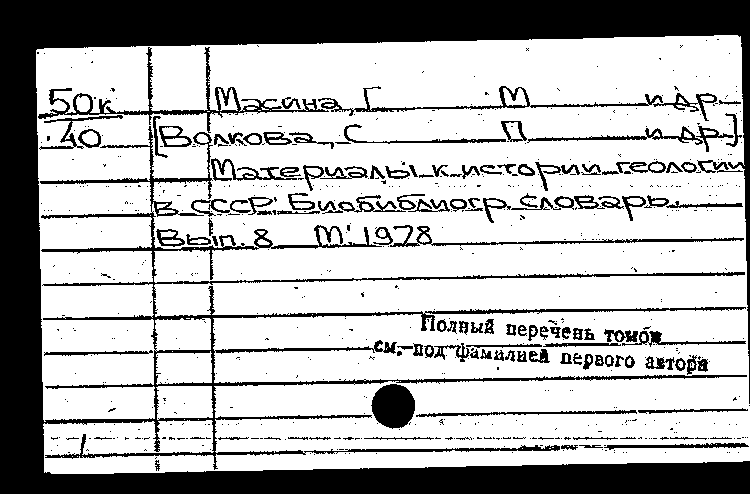 50к Масина, Г М и др
40 [Волкова, С П и др.]
Материалы к истории геологии
в СССР. Биобиблиогр. словарь.
Вып. 8 М. 1978
Полный перечень томов
см. под фамилией первого автора
1